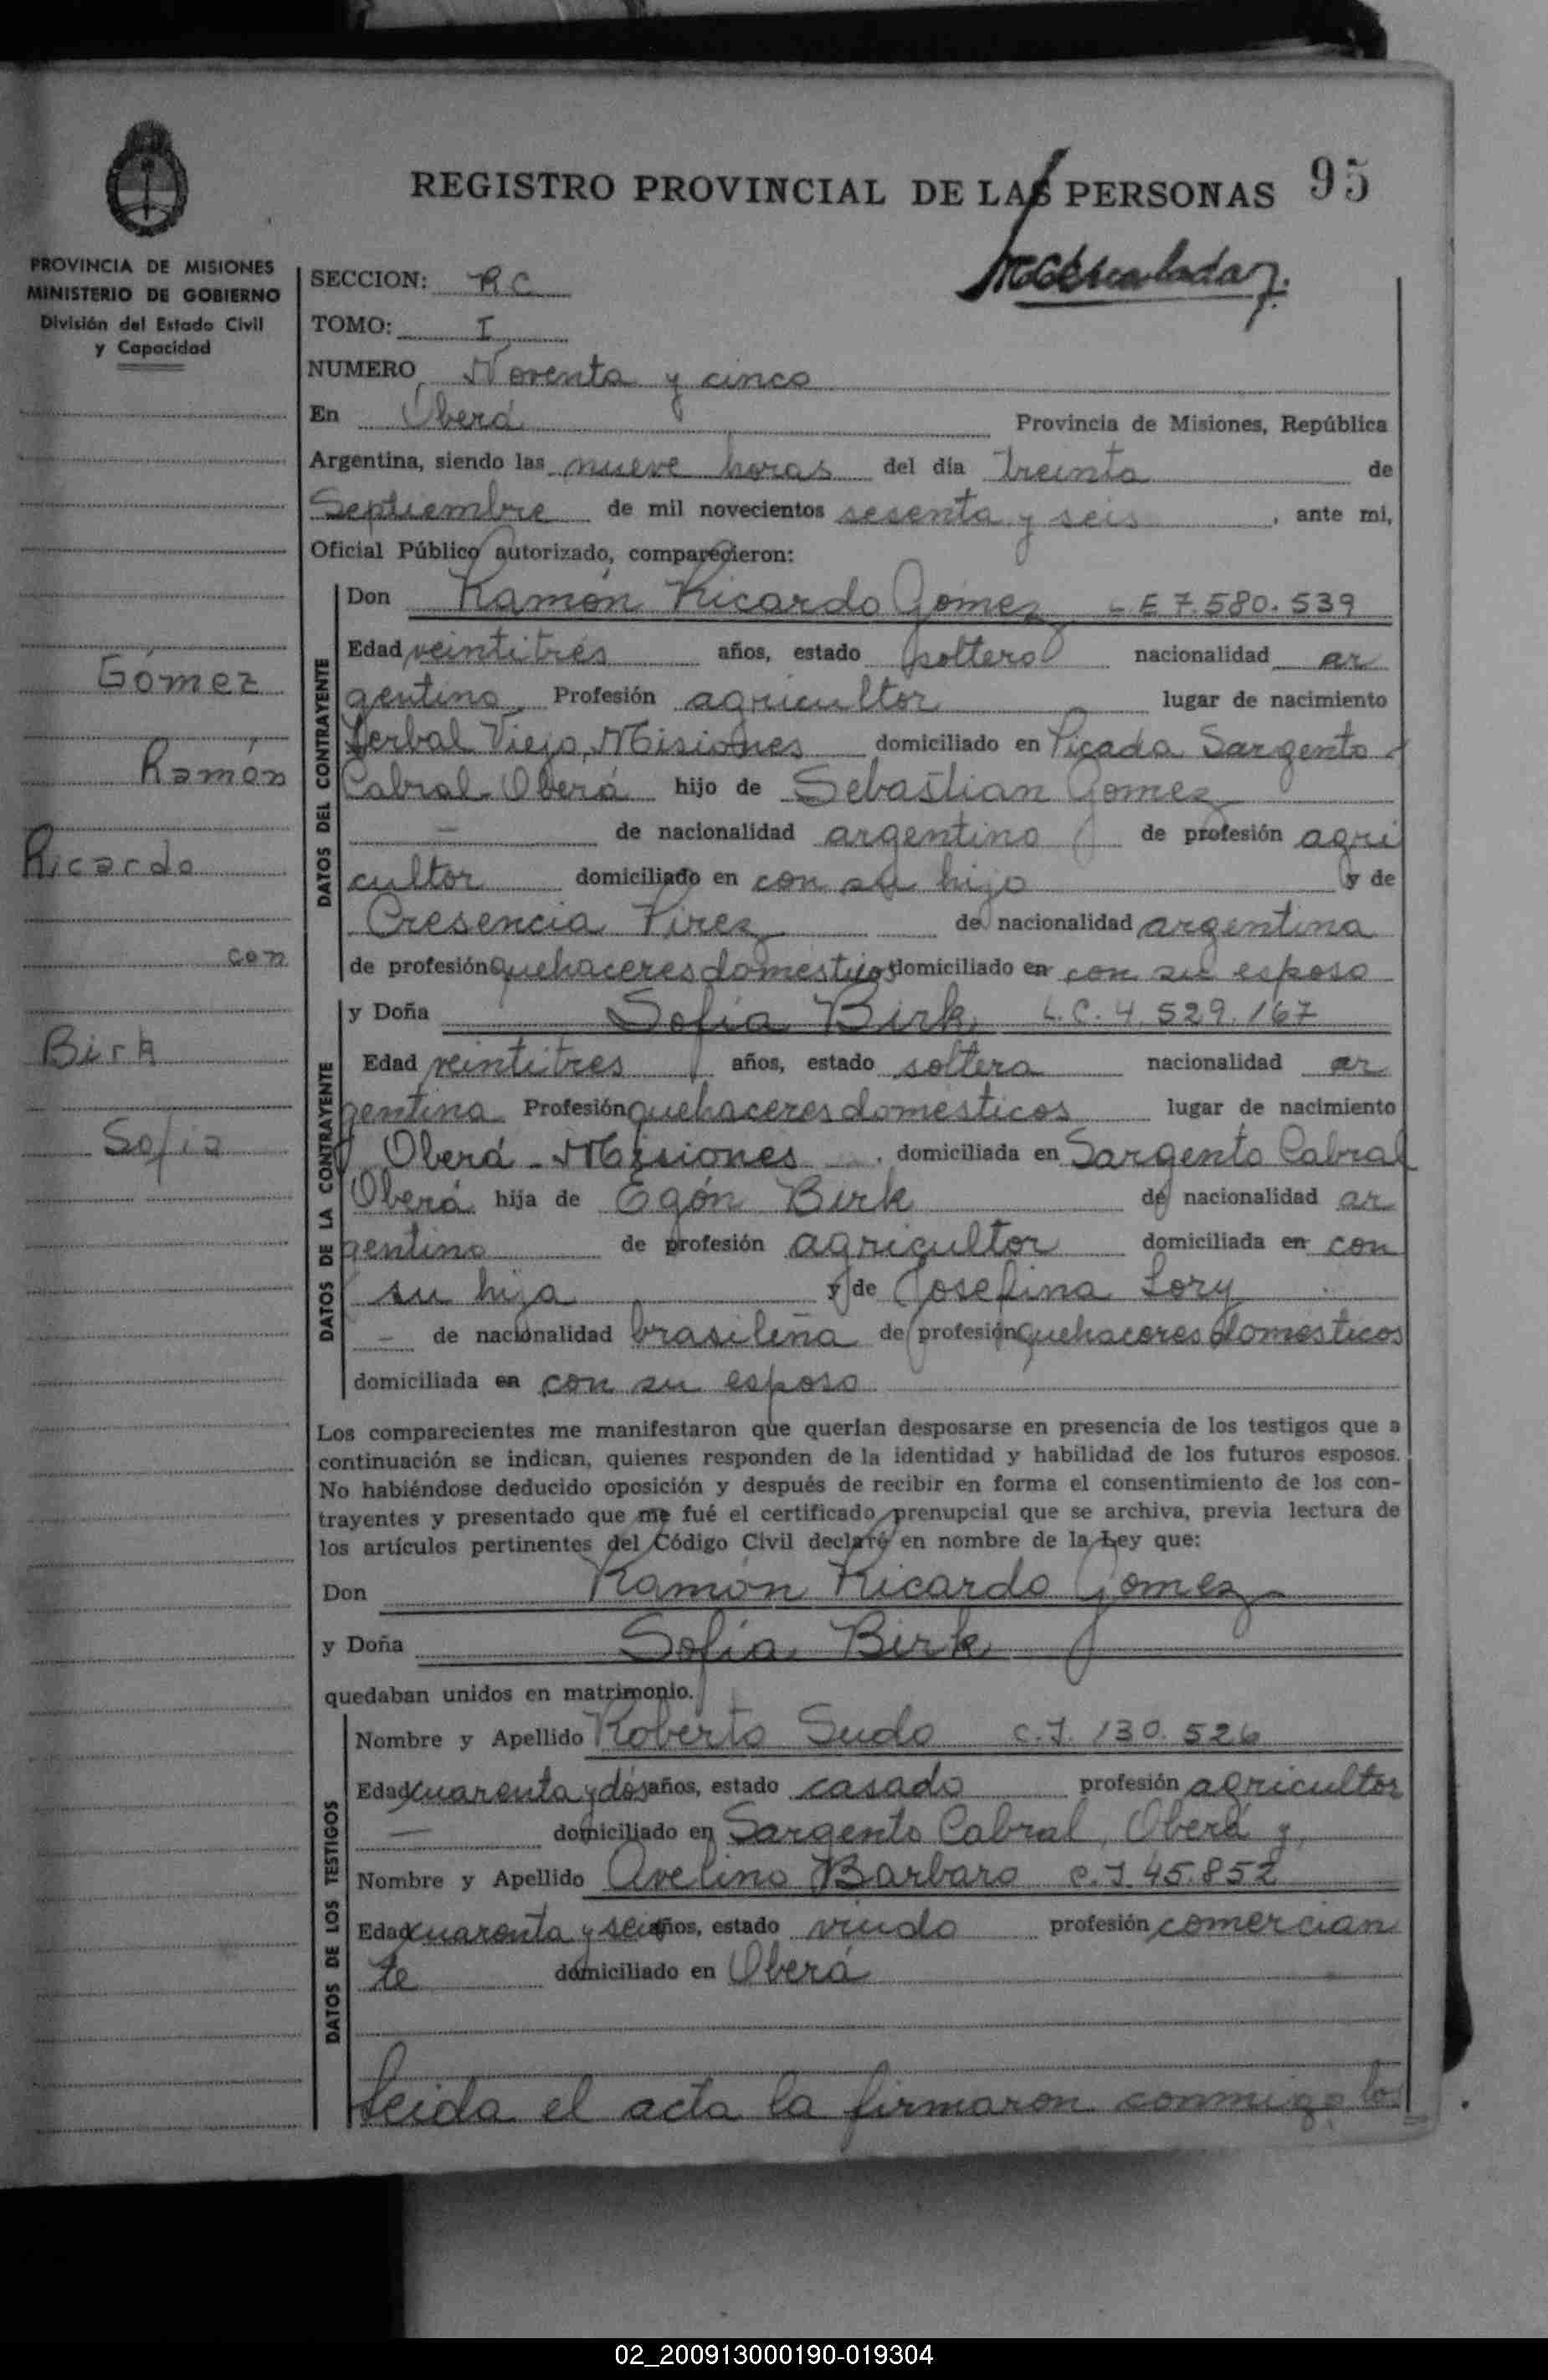 REGISTRO PROVINCIAL DE LAS PERSONAS 95
PROVINCIA DE MISIONES
MINISTERIO DE GOBIERNO
División del Estado Civil
y Capacidad
SECCION: RC
TOMO: I
NUMERO Noventa y cinco
En Oberá Provincia de Misiones, República
Argentina, siendo las nueve horas del día treinta de
Septiembre de mil novecientos sesenta y seis, ante mi,
Oficial Público autorizado, comparecieron:
Gómez
Ramón
Ricardo
con
Birk
Sofia
DATOS DEL CONTRAYENTE
Don Ramón Ricardo Gomez L E 7.580.539
Edad veintitrés años, estado soltero nacionalidad ar
gentino Profesión agricultor lugar de nacimiento
Yerbal Viejo, Misiones domiciliado en Picada Sargento
Cabral-Oberá hijo de Sebastian Gomez
— de nacionalidad argentino de profesión agri
cultor domiciliado en con su hijo y de
Cresencia Pirez de nacionalidad argentina
de profesión quehaceres domesticos domiciliado en con su esposo
DATOS DE LA CONTRAYENTE
y Doña Sofia Birk L.C. 4.529.167
Edad veintitres años, estado soltera nacionalidad ar
gentina Profesión quehaceres domésticos lugar de nacimiento
Oberá - Misiones, domiciliada en Sargento Cabral
Oberá hija de Egón Birk de nacionalidad ar
gentino de profesión agricultor domiciliada en con
su hija y de Josefina Lory
— de nacionalidad brasileña de profesión quehaceres domesticos
domiciliada en con su esposo
Los comparecientes me manifestaron que querían desposarse en presencia de los testigos que a
continuación se indican, quienes responden de la identidad y habilidad de los futuros esposos.
No habiéndose deducido oposición y después de recibir en forma el consentimiento de los con-
trayentes y presentado que me fué el certificado prenupcial que se archiva, previa lectura de
los artículos pertinentes del Código Civil declaré en nombre de la Ley que:
Don Ramón Ricardo Gomez
y Doña Sofia Birk
quedaban unidos en matrimonio.
DATOS DE LOS TESTIGOS
Nombre y Apellido Roberto Sudo C.I. 130.526
Edad cuarenta y dós años, estado casado profesión agricultor
— domiciliado en Sargento Cabral, Oberá y,
Nombre y Apellido Avelino Barbaro C.I. 45.852
Edad cuarenta y seis años, estado viudo profesión comercian
te domiciliado en Oberá
Leida el acta la firmaron conmigo los
02_200913000190-019304